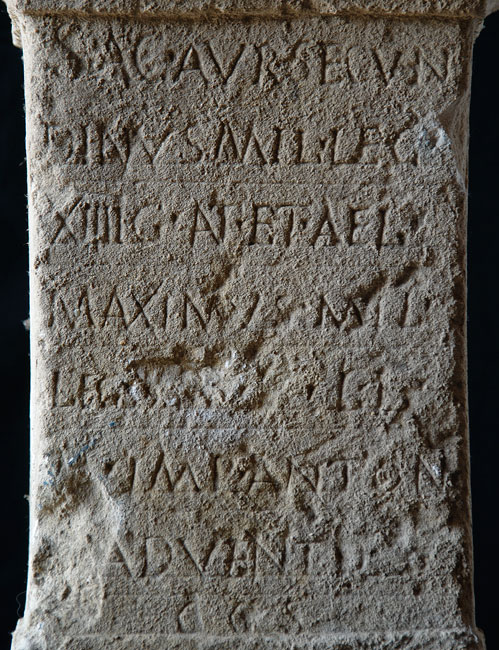 SAC·AVR·SECVN
DINVS·MIL·LEG
XIIII G·AN·ET·AEL·
MAXIMVS·MIL
LEG
IMP·ANTON
ADVENTI
COS